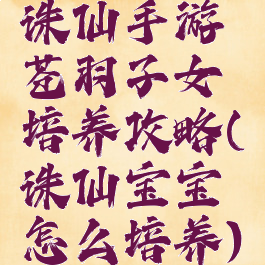 诛仙手游
苍羽子女
培养攻略(
诛仙宝宝
怎么培养)